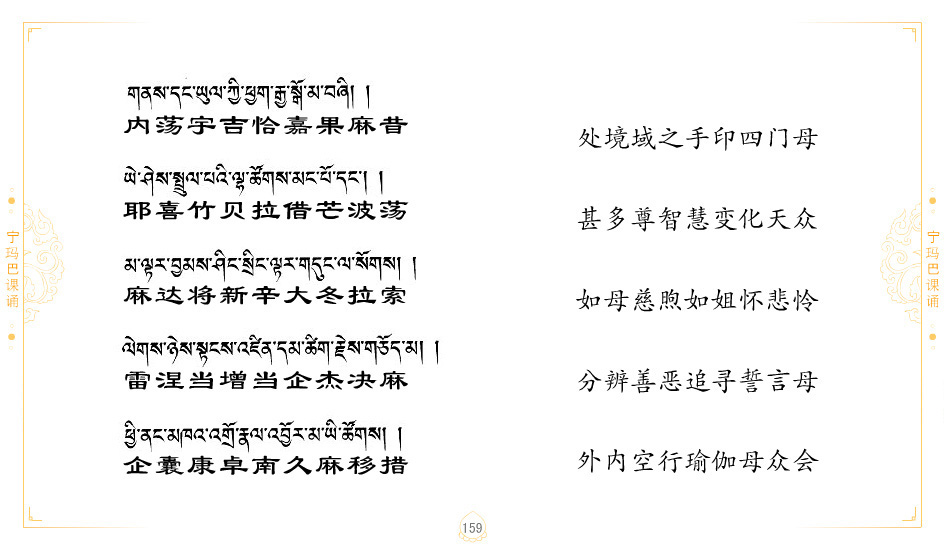 གནས་དང་ཡུལ་གྱི་ཕྱག་རྒྱ་སྒོ་མ་བཞི། །
内荡宇吉恰嘉果麻昔
处境域之手印四门母
ཡེ་ཤེས་སྤྲུལ་པའི་ལྷ་ཚོགས་མང་པོ་དང་། །
耶喜竹贝拉借芒波荡
甚多尊智慧变化天众
མ་ལྟར་བྱམས་ཤིང་སྲིང་ལྟར་གདུང་ལ་སོགས། །
麻达将新辛大冬拉索
如母慈煦如姐怀悲怜
ལེགས་ཉེས་སྟངས་འཛིན་དམ་ཚིག་རྗེས་གཅོད་མ། །
雷涅当增当企杰决麻
分辨善恶追寻誓言母
ཕྱི་ནང་མཁའ་འགྲོ་རྣལ་འབྱོར་མ་ཡི་ཚོགས། །
企囊康卓南久麻移措
外内空行瑜伽母众会
宁玛巴课诵
宁玛巴课诵
159